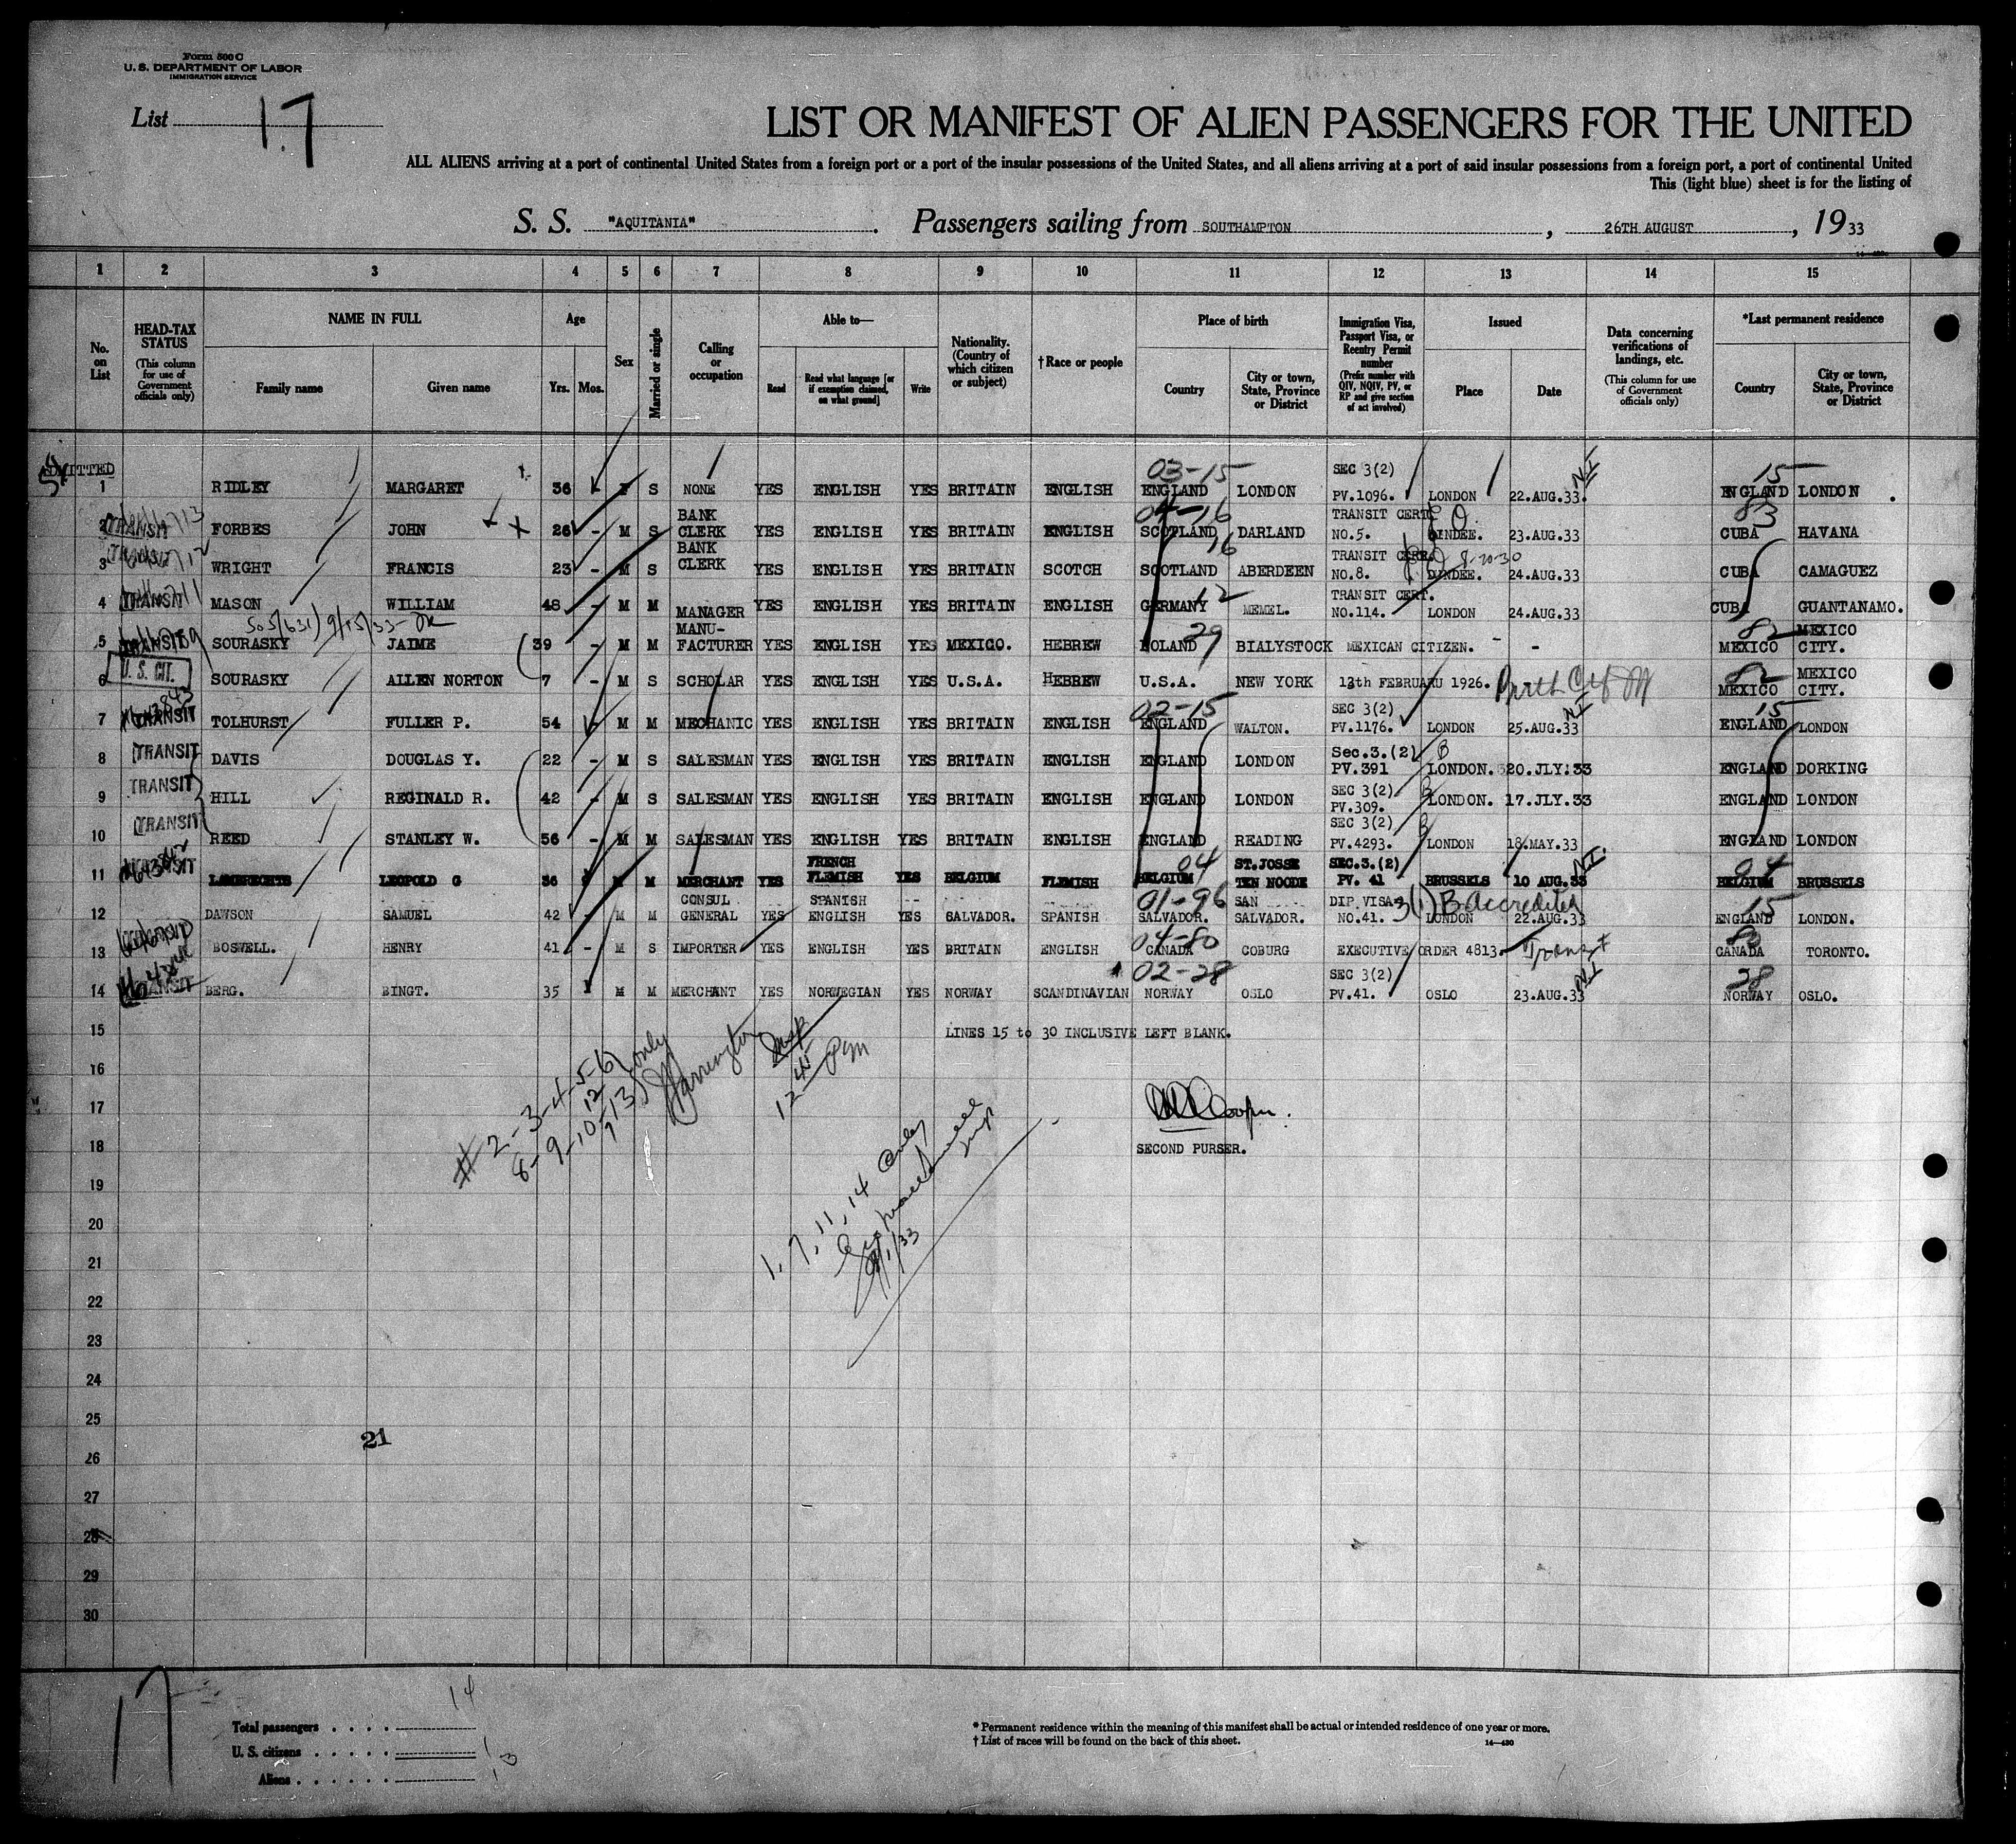 Form 500 C
U. S. DEPARTMENT OF LABOR
IMMIGRATION SERVICE
List 17
LIST OR MANIFEST OF ALIEN PASSENGERS FOR THE UNITED
ALL ALIENS arriving at a port of continental United States from a foreign port or a port of the insular possessions of the United States, and all aliens arriving at a port of said insular possessions from a foreign port, a port of continental United
This (light blue) sheet is for the listing of
S. S. "AQUITANIA". Passengers sailing from SOUTHAMPTON, 26TH AUGUST, 1933
1 2 3 4 5 6 7 8 9 10 11 12 13 14 15
No. on List
HEAD-TAX STATUS (This column for use of Government officials only)
NAME IN FULL
Family name Given name
Age
Yrs. Mos.
Sex
Married or single
Calling or occupation
Able to—
Read Read what language [or if exemption claimed, on what ground] Write
Nationality. (Country of which citizen or subject)
† Race or people
Place of birth
Country City or town, State, Province or District
Immigration Visa, Passport Visa, or Reentry Permit number (Prefix number with QIV, NQIV, PV, or RP and give section of act involved)
Issued
Place Date
Data concerning verifications of landings, etc. (This column for use of Government officials only)
*Last permanent residence
Country City or town, State, Province or District
ADMITTED 03-15 SEC 3(2) N.I 15
1 RIDLEY MARGARET 36 - F S NONE YES ENGLISH YES BRITAIN ENGLISH ENGLAND LONDON PV.1096. LONDON 22.AUG.33. ENGLAND LONDON.
04-16 83
2 TRANSIT FORBES JOHN 26 - M S BANK CLERK YES ENGLISH YES BRITAIN ENGLISH SCOTLAND DARLAND TRANSIT CERT. NO.5. DUNDEE. 23.AUG.33 CUBA HAVANA
16 8-20-30
3 WRIGHT FRANCIS 23 - M S BANK CLERK YES ENGLISH YES BRITAIN SCOTCH SCOTLAND ABERDEEN TRANSIT CERT. NO.8. DUNDEE. 24.AUG.33 CUBA CAMAGUEZ
12
4 TRANSIT MASON WILLIAM 48 - M M MANAGER YES ENGLISH YES BRITAIN ENGLISH GERMANY MEMEL. TRANSIT CERT. NO.114. LONDON 24.AUG.33 CUBA GUANTANAMO.
29 82
5 SOURASKY JAIME 39 - M M MANU-FACTURER YES ENGLISH YES MEXICO. HEBREW POLAND BIALYSTOCK MEXICAN CITIZEN. - - MEXICO MEXICO CITY.
U. S. CIT. 82
6 SOURASKY ALLEN NORTON 7 - M S SCHOLAR YES ENGLISH YES U.S.A. HEBREW U.S.A. NEW YORK 13th FEBRUARY 1926. Birth Ctf MEXICO MEXICO CITY.
02-15 N.I 15
7 TRANSIT TOLHURST FULLER P. 54 - M M MECHANIC YES ENGLISH YES BRITAIN ENGLISH ENGLAND WALTON. SEC 3(2) PV.1176. LONDON 25.AUG.33 ENGLAND LONDON
8 TRANSIT DAVIS DOUGLAS Y. 22 - M S SALESMAN YES ENGLISH YES BRITAIN ENGLISH ENGLAND LONDON Sec.3.(2) PV.391 B LONDON. 20.JLY.33 ENGLAND DORKING
9 TRANSIT HILL REGINALD R. 42 - M S SALESMAN YES ENGLISH YES BRITAIN ENGLISH ENGLAND LONDON SEC 3(2) PV.309. B LONDON. 17.JLY.33 ENGLAND LONDON
10 TRANSIT REED STANLEY W. 56 - M M SALESMAN YES ENGLISH YES BRITAIN ENGLISH ENGLAND READING SEC 3(2) PV.4293. B LONDON 18.MAY.33 ENGLAND LONDON
04 N.I. 04
11 LAMBRECHTS LEOPOLD G 36 M M MERCHANT YES FRENCH FLEMISH YES BELGIUM FLEMISH BELGIUM ST.JOSSE TEN NOODE SEC.3.(2) PV. 41 BRUSSELS 10 AUG.33 BELGIUM BRUSSELS
01-96 3(1) B Accredited 15
12 DAWSON SAMUEL 42 - M M CONSUL GENERAL YES SPANISH ENGLISH YES SALVADOR. SPANISH SALVADOR. SAN SALVADOR. DIP.VISA NO.41. LONDON 22.AUG.33 ENGLAND LONDON.
04-80 80
13 BOSWELL. HENRY 41 - M S IMPORTER YES ENGLISH YES BRITAIN ENGLISH CANADA COBURG EXECUTIVE ORDER 4813. Transit CANADA TORONTO.
02-28 N.I 28
14 TRANSIT BERG. BINGT. 35 M M MERCHANT YES NORWEGIAN YES NORWAY SCANDINAVIAN NORWAY OSLO SEC 3(2) PV.41. OSLO 23.AUG.33 NORWAY OSLO.
15 LINES 15 to 30 INCLUSIVE LEFT BLANK.
16
17
18 SECOND PURSER.
# 2-3-4-5-6 only
8-9-10-12 13
Harrington Insp
12 45 PM
1, 7, 11, 14 only
9/1/33
19
20
21
22
23
24
25
21
26
27
28
29
30
17
Total passengers . . . . 14
U. S. citizens . . . . . 1
Aliens . . . . . . 13
* Permanent residence within the meaning of this manifest shall be actual or intended residence of one year or more.
† List of races will be found on the back of this sheet. 14—430